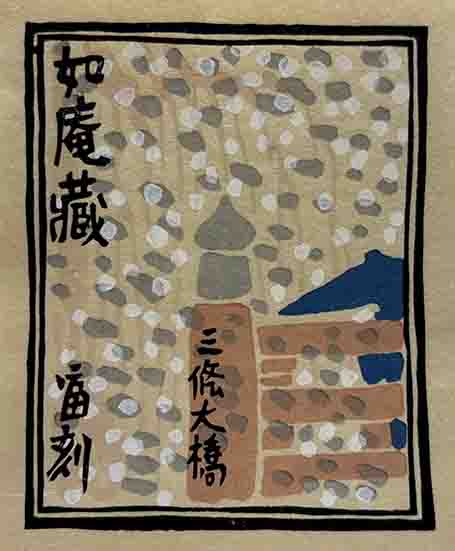 三條大橋
如庵藏
富刻